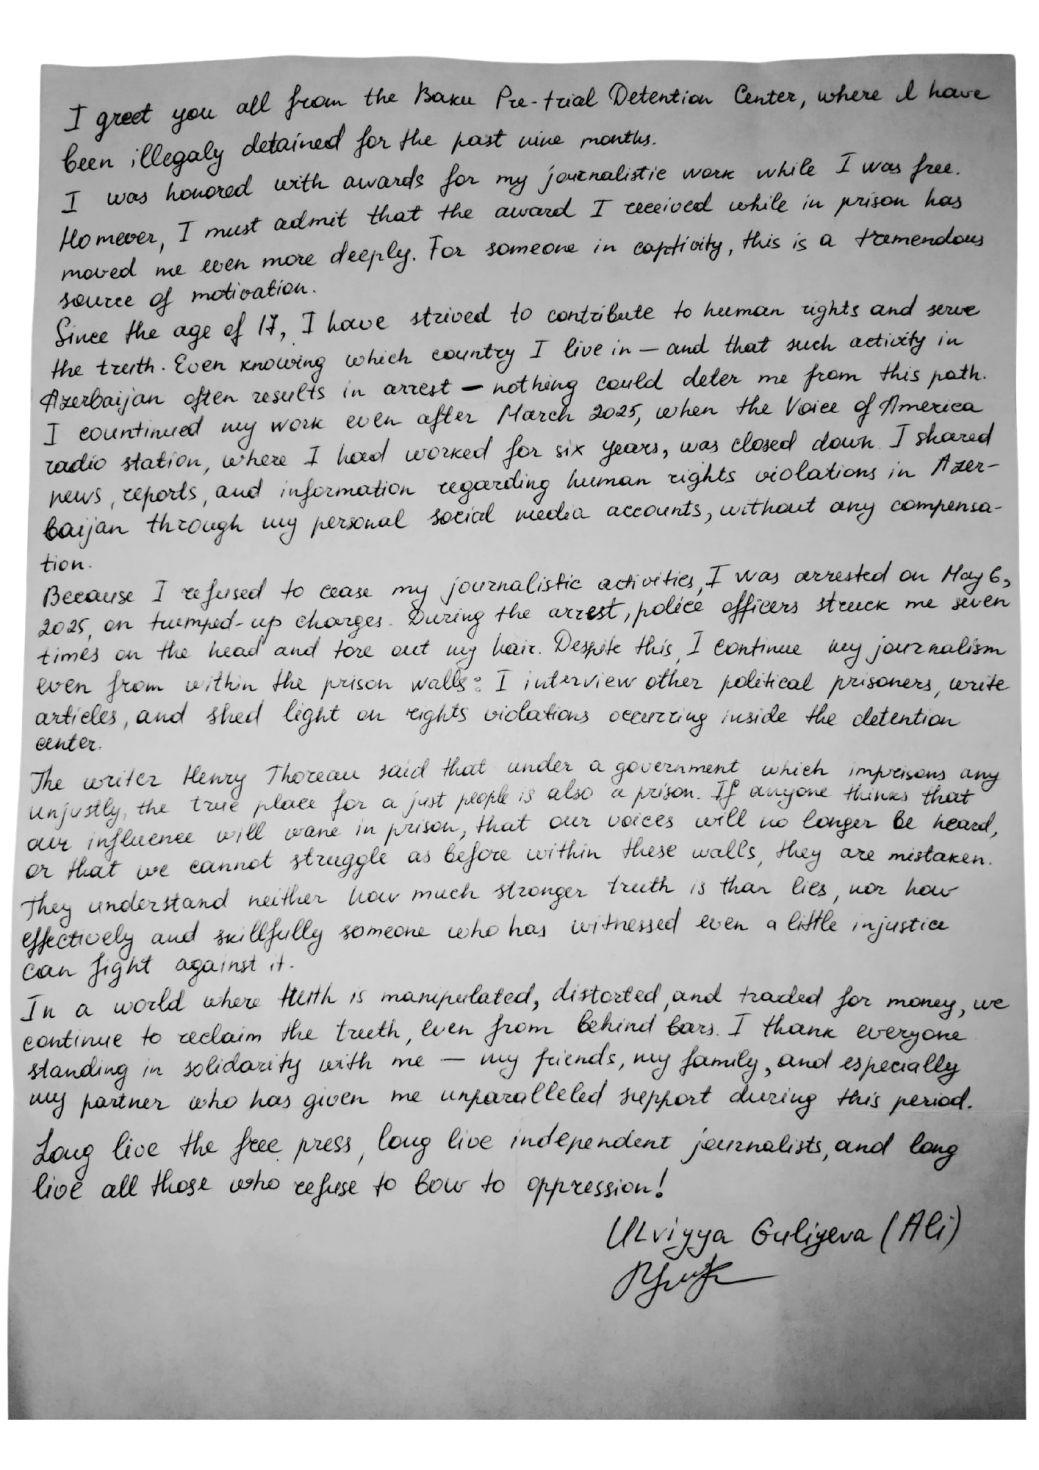 I greet you all from the Baku Pre-trial Detention Center, where I have
been illegaly detained for the past nine months.
I was honored with awards for my journalistic work while I was free.
However, I must admit that the award I received while in prison has
moved me even more deeply. For someone in captivity, this is a tremendous
source of motivation.
Since the age of 17, I have strived to contribute to human rights and serve
the truth. Even knowing which country I live in — and that such activity in
Azerbaijan often results in arrest — nothing could deter me from this path.
I countinued my work even after March 2025, when the Voice of America
radio station, where I had worked for six years, was closed down. I shared
news, reports, and information regarding human rights violations in Azer-
baijan through my personal social media accounts, without any compensa-
tion.
Because I refused to cease my journalistic activities, I was arrested on May 6,
2025, on trumped-up charges. During the arrest, police officers struck me seven
times on the head and tore out my hair. Despite this, I continue my journalism
even from within the prison walls: I interview other political prisoners, write
articles, and shed light on rights violations occurring inside the detention
center.
The writer Henry Thoreau said that under a government which imprisons any
unjustly, the true place for a just people is also a prison. If anyone thinks that
our influence will wane in prison, that our voices will no longer be heard,
or that we cannot struggle as before within these walls, they are mistaken.
They understand neither how much stronger truth is than lies, nor how
effectively and skillfully someone who has witnessed even a little injustice
can fight against it.
In a world where truth is manipulated, distorted, and traded for money, we
continue to reclaim the truth, even from behind bars. I thank everyone
standing in solidarity with me — my friends, my family, and especially
my partner who has given me unparalleled support during this period.
Long live the free press, long live independent journalists, and long
live all those who refuse to bow to oppression!
Ulviyya Guliyeva (Ali)